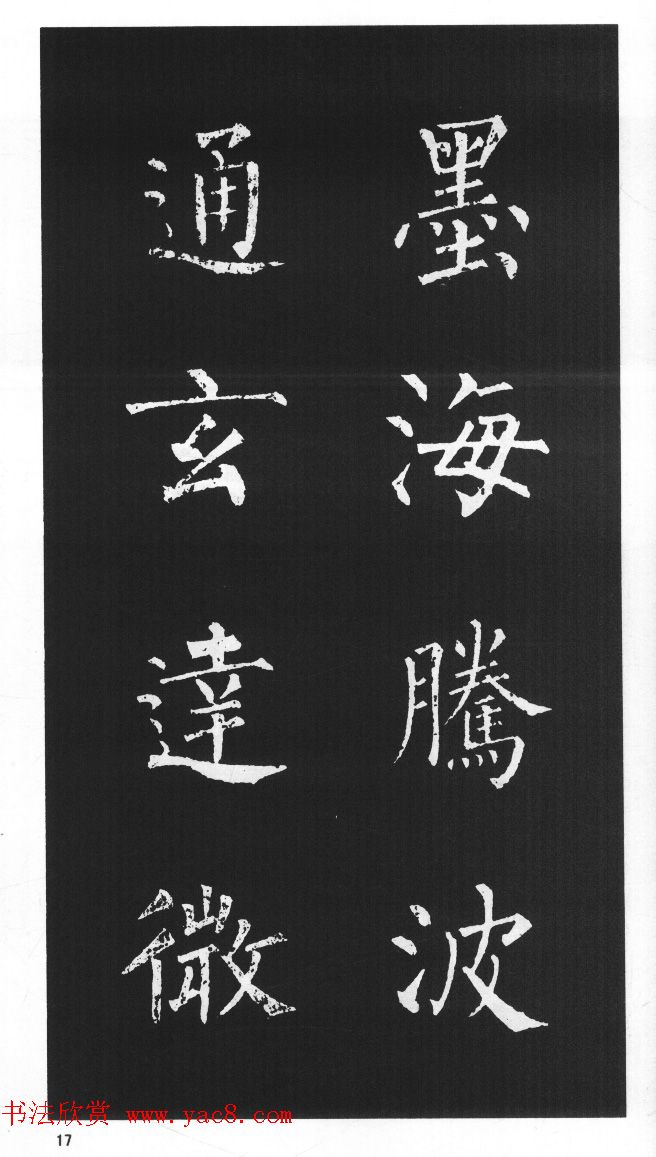 墨海騰波
通玄達微
书法欣赏 www.yac8.com
17